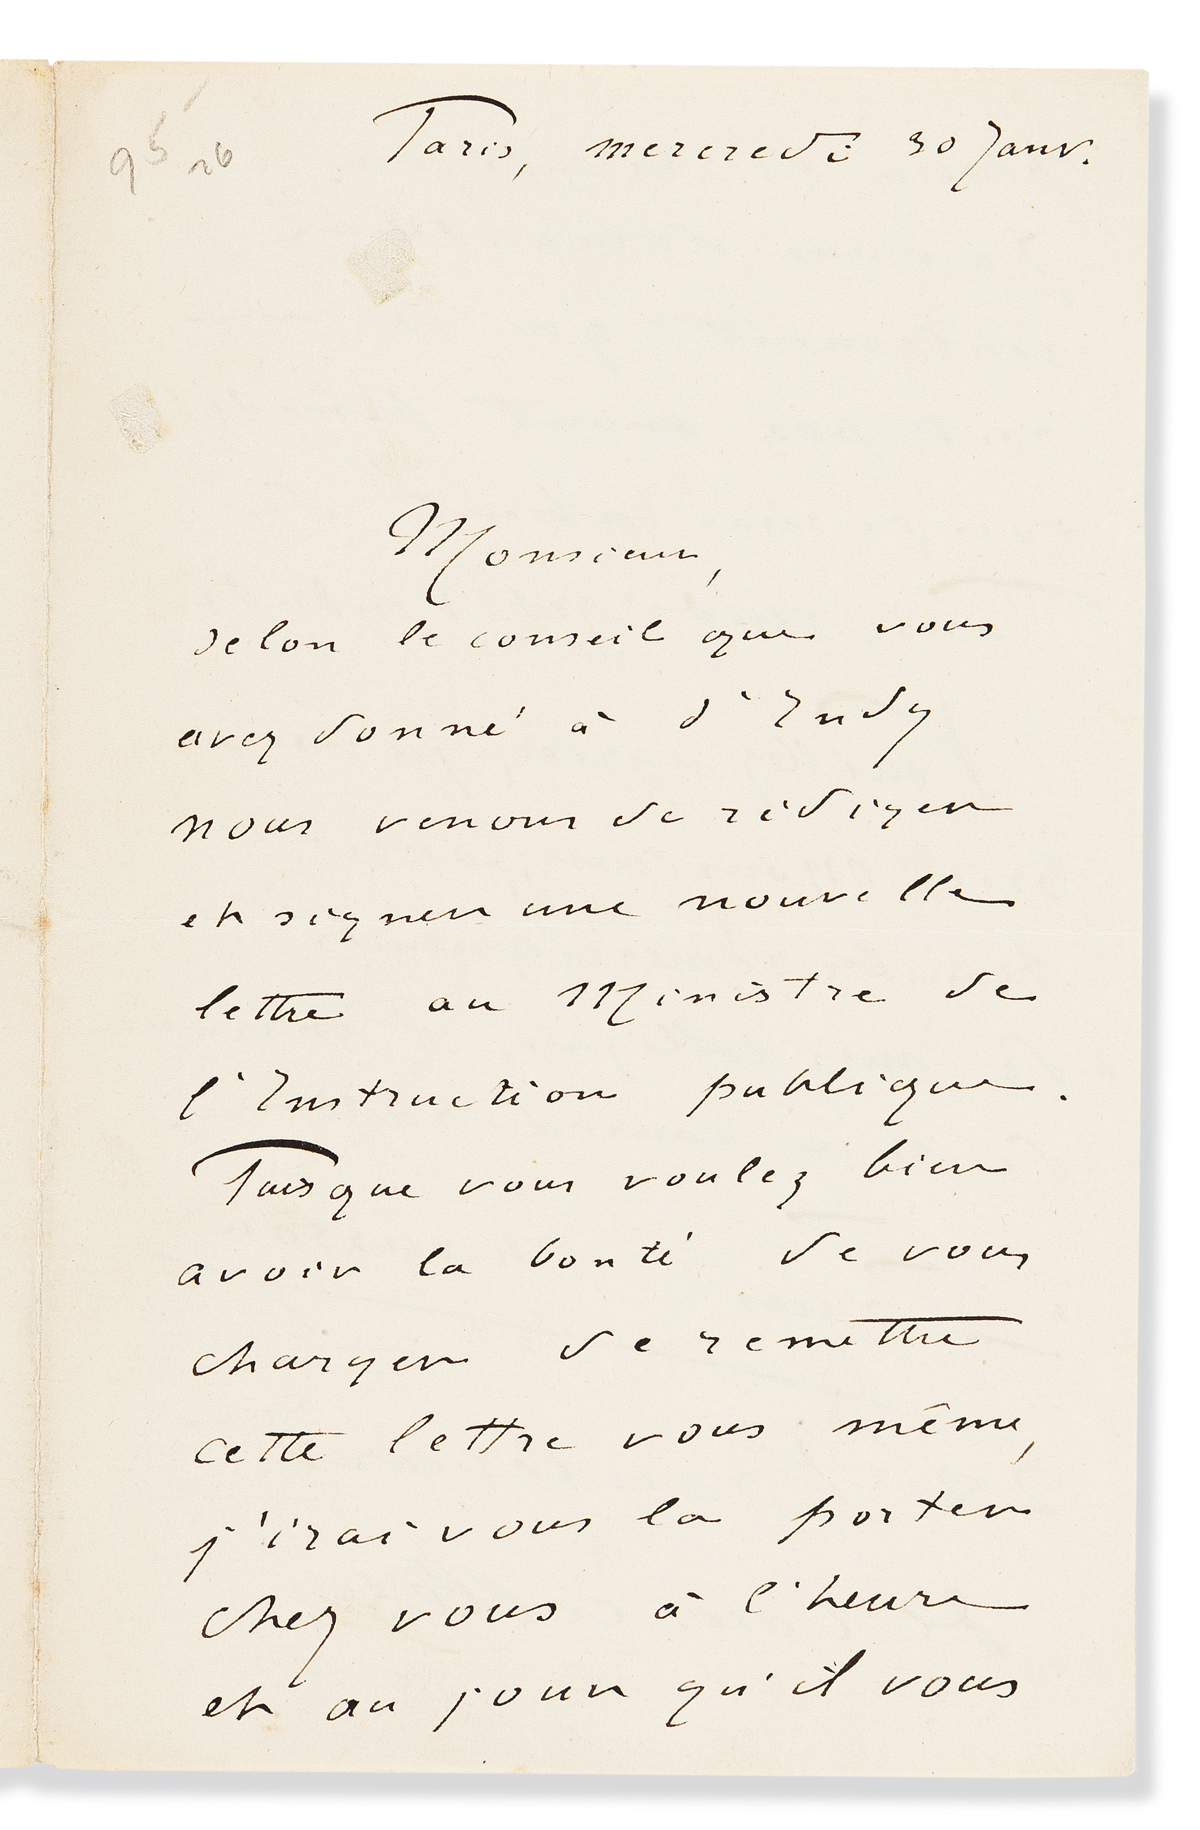 95 26
Paris, mercredi 30 Janv.
Monsieur,
selon le conseil que vous
avez donné à d'Indy
nous venons de rédiger
et signer une nouvelle
lettre au Ministre de
l'Instruction publique.
Puisque vous voulez bien
avoir la bonté de vous
charger de remettre
cette lettre vous même,
j'irai vous la porter
chez vous à l'heure
et au jour qu'il vous